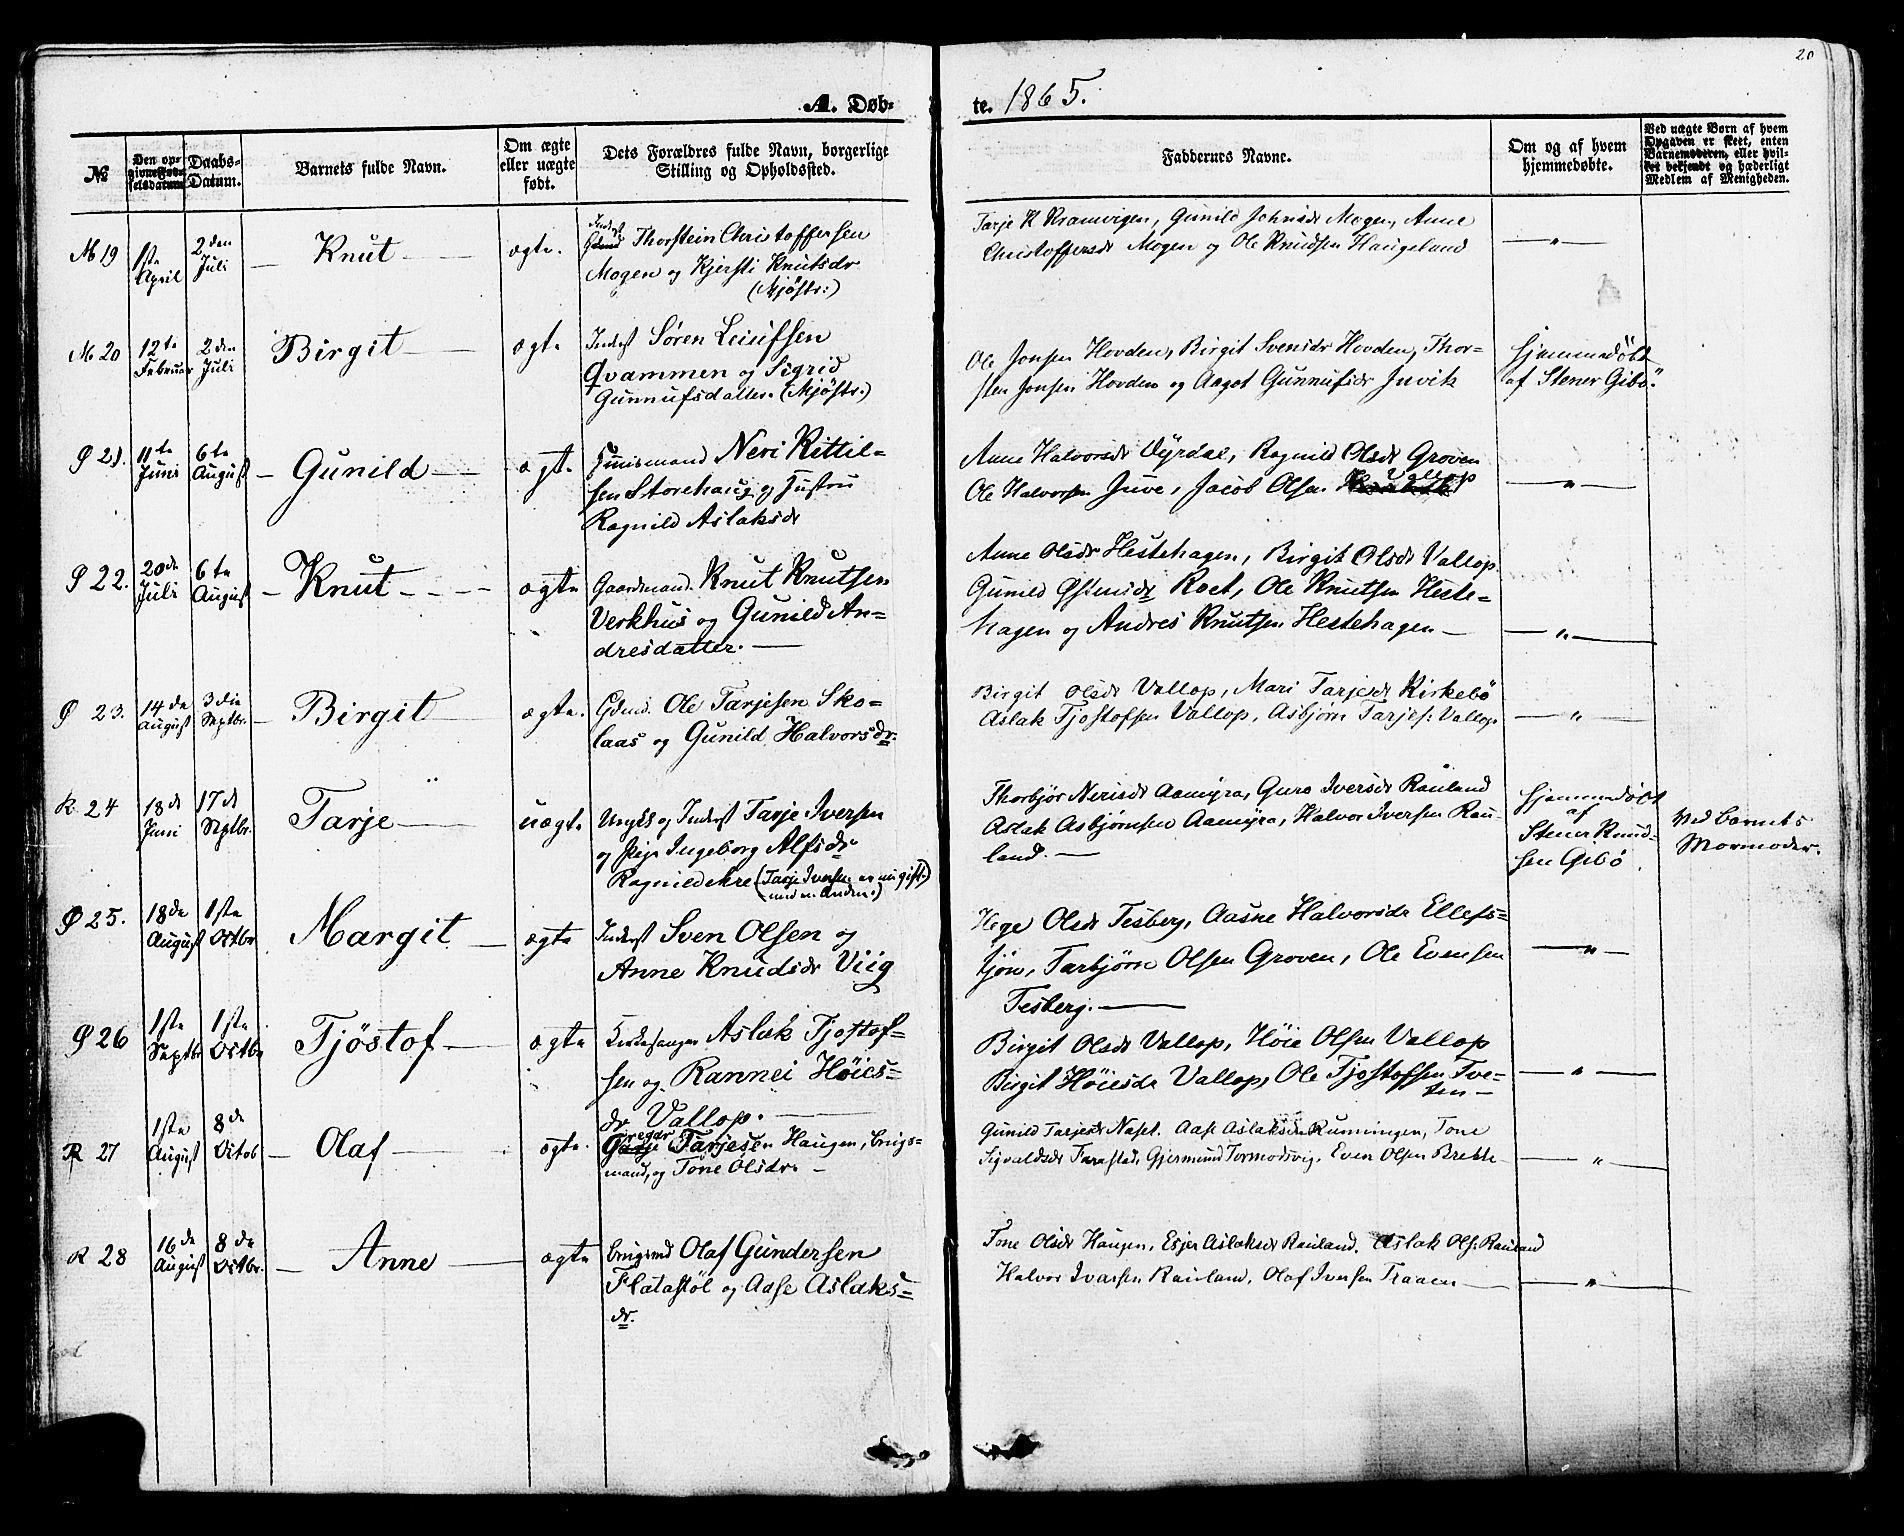 20
A. Døbte. 1865.
№
Den opgivne Fødselsdatum
Daabs-Datum.
Barnets fulde Navn.
Om ægte eller uægte født.
Dets Forældres fulde Navn, borgerlige Stilling og Opholdssted.
Faddernes Navne.
Om og af hvem hjemmedøbte.
Ved uægte Børn af hvem Opgaven er skeet, enten Barnemoderen, eller hvilket bekjendt og hæderligt Medlem af Menigheden.
M 19 1ste April 2den Juli Knut ægte.
Inderst Thorstein Christoffersen
Mogen og Kjersti Knutsdr
(Mjöstr:)
Tarje K Kramvigen, Gunild Johnsdr Mogen, Anne
Christoffersdr Mogen og Ole Knudsen Haugeland
— " —
M 20 12te Februar 2den Juli Birgit ægte
Inderst Søren Leiufsen
Qvammen og Sigrid
Gunnufsdatter. (Mjöstr.)
Ole Jonsen Hovden, Birgit Svensdr Hovden, Thor-
sten Jonsen Hovden og Aagot Gunnufsdr Juvik
Hjemmedöbt
af Stener Gibö."
Ø 21. 11te Juni 6te August Gunild ægte
Huusmand Neri Kittil-
sen Storehaug og Hustru
Ragnild Aslaksdr
Anne Halvorsdr Dyrdal, Ragnild Olsdr Groven
Vallop
Ole Halvorsen Juve, Jacob Olsen
— " —
Ø 22. 20de Juli 6te August Knut ægte
Gaardmand Knut Knutsen
Verkhus og Gunild An-
dresdatter. —
Anne Olsdr Hestehagen, Birgit Olsdr Vallop
Gunild Østensdr Roet, Ole Knutsen Heste-
hagen og Andres Knutsen Hestehagen —
— " —
Ø 23. 14de August 3die Septbr. Birgit ægte.
Gdmd. Ole Tarjesen Sko-
laas og Gunild Halvorsdr.
Birgit Olsdr Vallop, Mari Tarjesdr Kirkebö
Aslak Tjostofsen Vallop, Asbjørn Tarjes: Vallop
— " —
R 24 18de Juni 17de Septbr. Tarje uægte
Ungk og Inderst Tarje Iversen
og Pige Ingeborg Alfsdr
Ragnildakre (Tarje Iversen er nu gift
med en Anden.)
Thorbjör Nerisdr Aamyra, Guro Iversdr Rauland
Aslak Asbjørnsen Aamyra, Halvor Iversen Rau-
land. —
Hjemmedöbt
af
Stener Knud-
sen Gibö.
Ved Barnets
Mormoder.
Ø 25. 18de August 1ste Octbr Margit ægte
Inderst Sven Olsen og
Anne Knudsdr Viig
Hege Olsdr Tesberg, Aasne Halvorsdr Ellefs-
tjön, Tarbjörn Olsen Groven, Ole Evensen
Tesberg. —
— " —
Ø 26 1ste Septbr 1ste Octbr Tjöstof ægte
Kirkesanger Aslak Tjostof-
sen og Rannei Höies-
dr Vallop. —
Birgit Olsdr Vallop, Höie Olsen Vallop
Birgit Höiesdr Vallop, Ole Tjostofsen Tve-
ten —
— " —
R 27 1ste August 8de Octob Olaf ægte.
Gregar
Tarjesen Haugen, Brugs-
mand, og Tone Olsdr. —
Gunild Tarjesdr Napet. Aase Aslaksdr Kunningen, Tone
Sigvaldsdr Farastad, Gjermund Tormodsvig, Even Olsen Brekke
— " —
R 28 16de August 8de Octbr. Anne ægte
Brugsmd Olaf Gundersen
Flatastöl og Aase Aslaks-
dr.
Tone Olsdr Haugen, Esjer Aslaksdr Rauland. Aslak Ols: Rauland
Halvor Ivarsen Rauland, Olaf Iversen Traaen
— " —